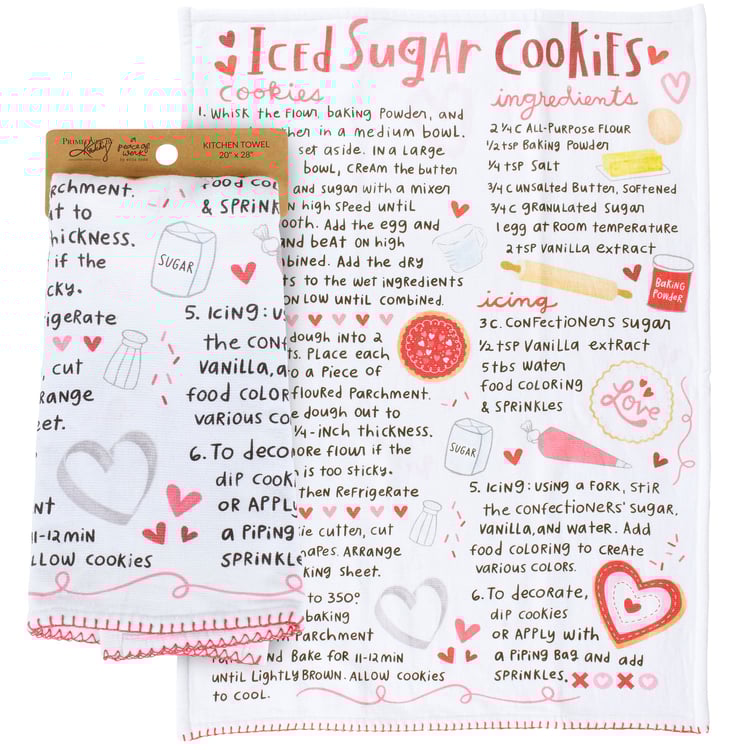 Iced Sugar Cookies
Cookies
1. Whisk the flour, baking powder, and
in a medium bowl.
set aside. In a large
bowl, cream the butter
and sugar with a mixer
on high speed until
Add the egg and
and beat on high
Add the dry
to the wet ingredients
on low until combined.
dough into 2
Place each
a piece of
floured parchment.
dough out to
1/4-inch thickness.
more flour if the
is too sticky.
then refrigerate
cutter, cut
Arrange
sheet.
to 350°
baking
parchment
and bake for 11-12 min
until lightly brown. Allow cookies
to cool.
ingredients
2 1/4 c all-purpose flour
1/2 tsp baking powder
1/4 tsp salt
3/4 c unsalted butter, softened
3/4 c granulated sugar
1 egg at room temperature
2 tsp vanilla extract
Baking
Powder
icing
3 c. confectioners sugar
1/2 tsp vanilla extract
5 tbs water
food coloring
& sprinkles
Love
SUGAR
5. Icing: using a fork, stir
the confectioners' sugar,
vanilla, and water. Add
food coloring to create
various colors.
6. To decorate,
dip cookies
or apply with
a piping bag and add
sprinkles.
Primitives by Kathy
peace of work
KITCHEN TOWEL
20" x 28"
food
& sprink
to
thickness.
if the
SUGAR
cut
5. Icing:
the
vanilla,
food color
various co
6. To decor
dip cook
or appl
a piping
sprinkle
11-12 min
cookies